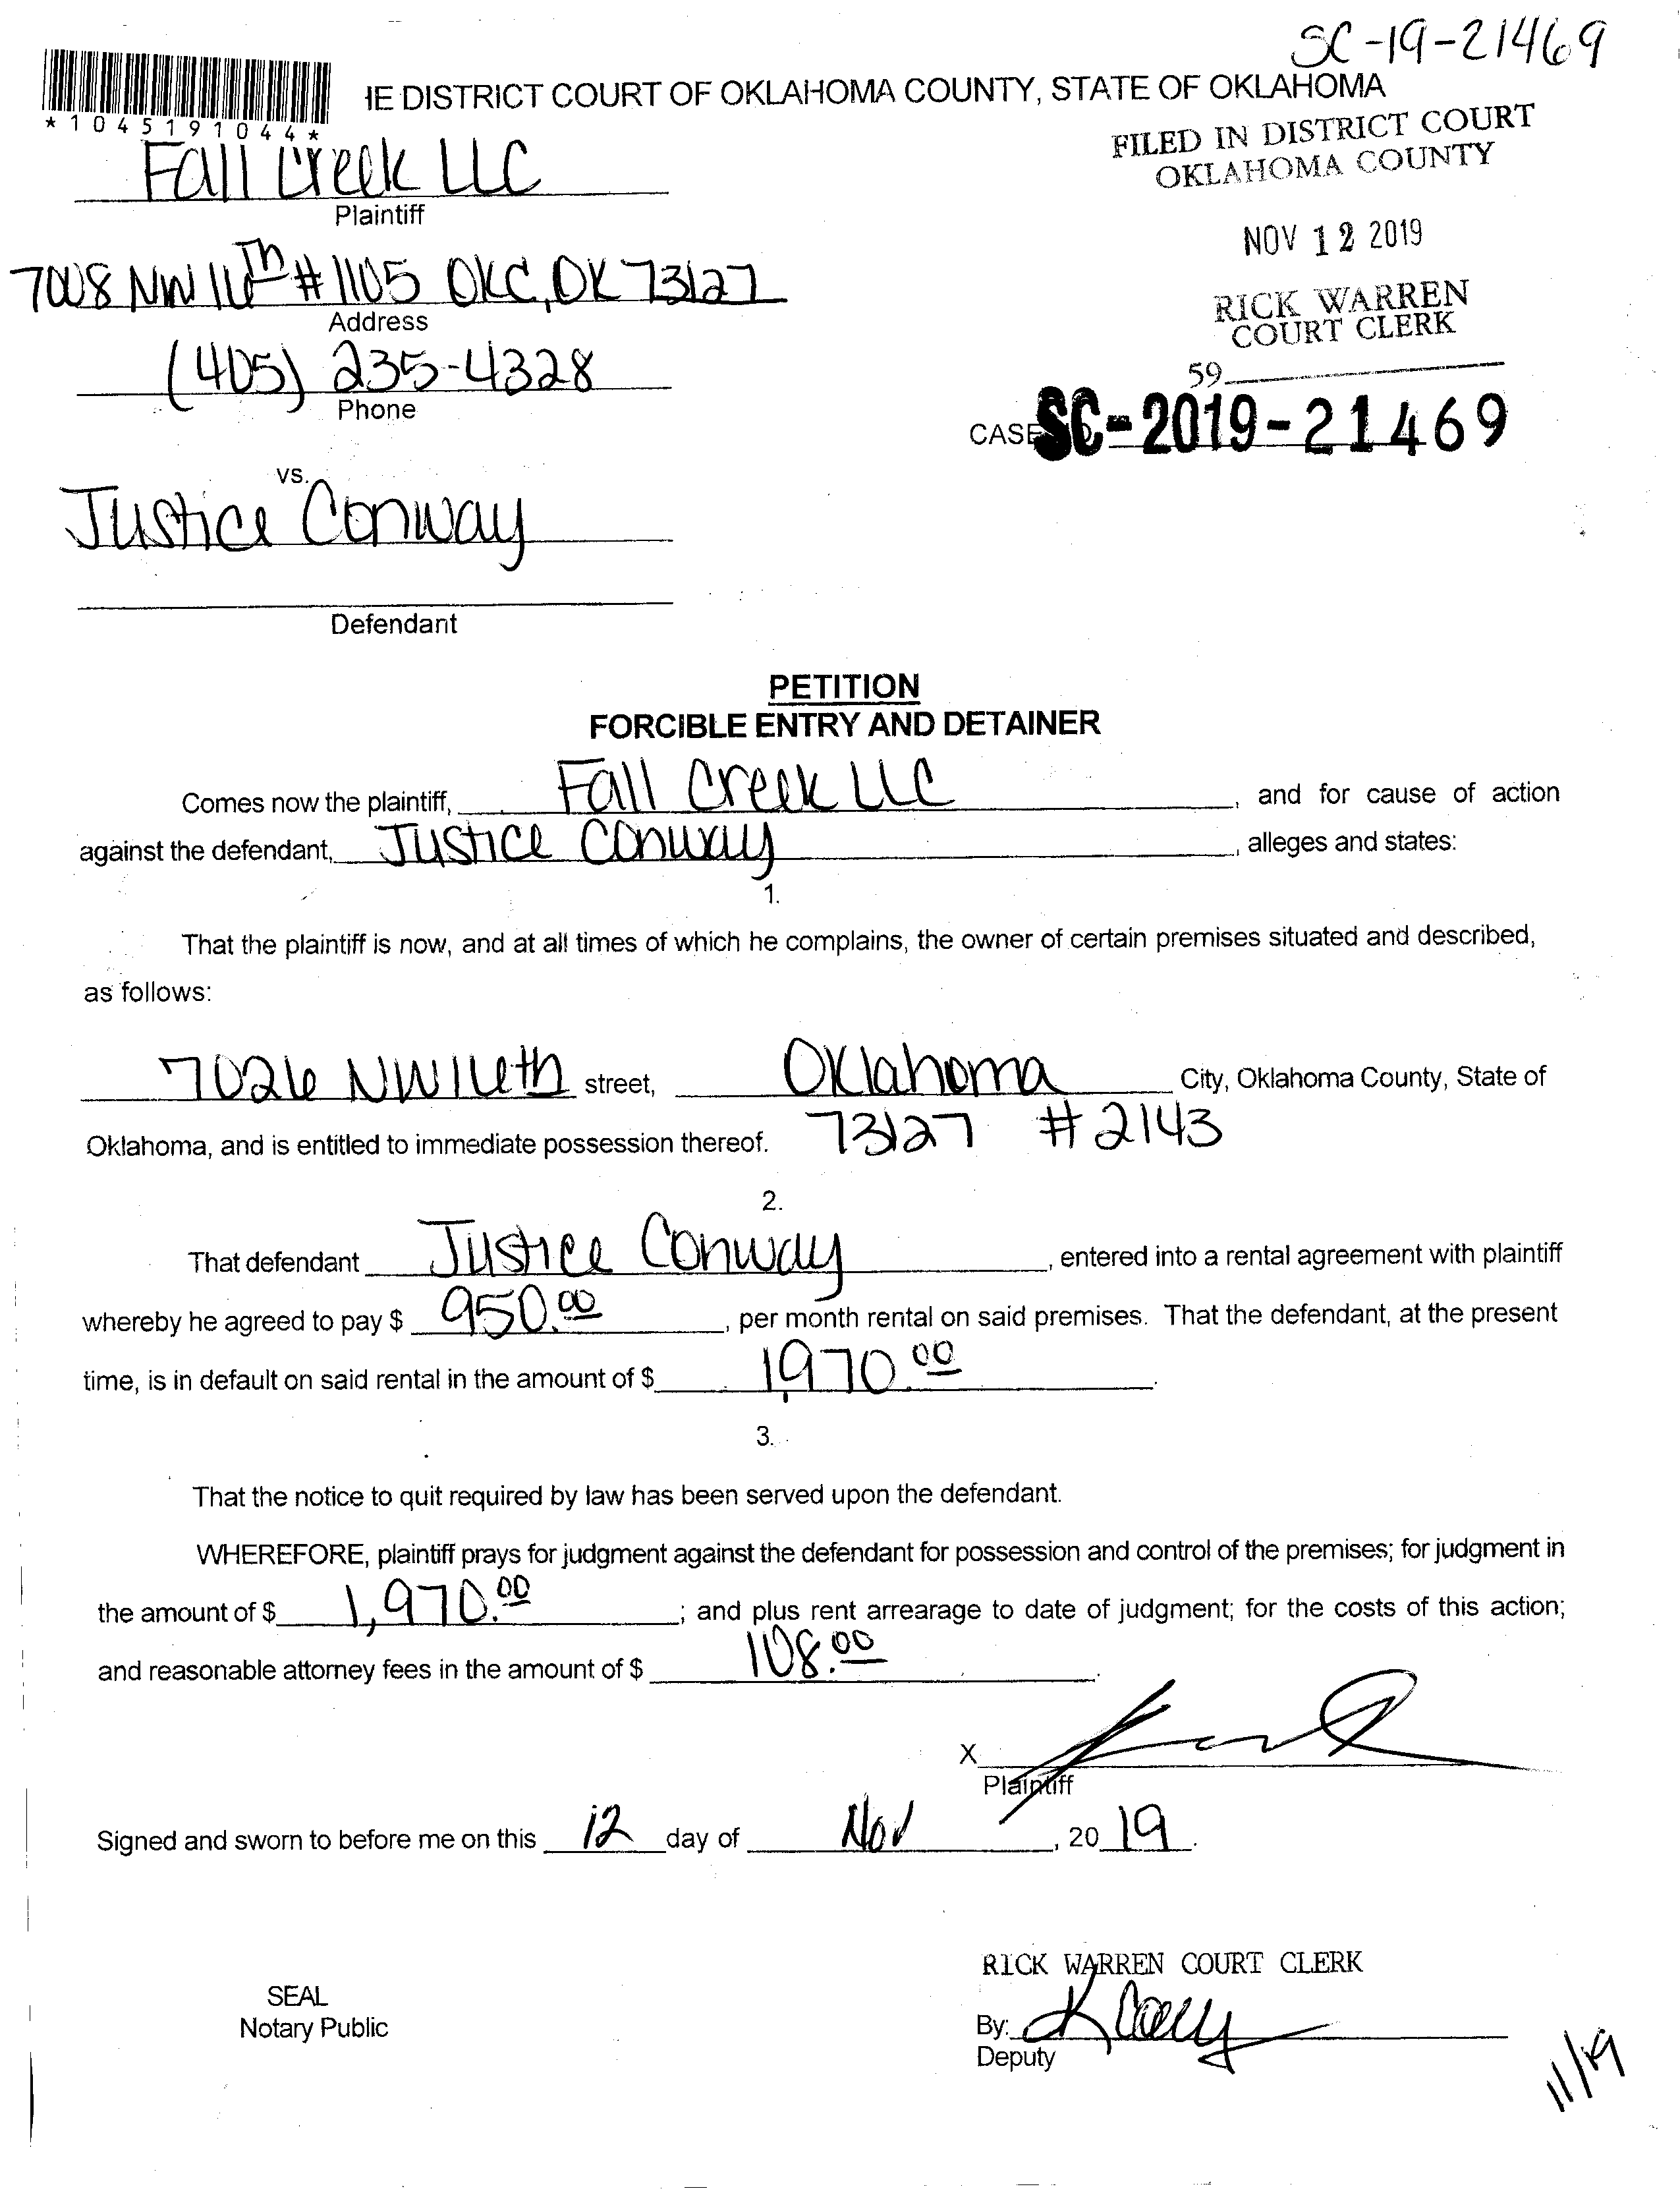 SC-19-21469
IE DISTRICT COURT OF OKLAHOMA COUNTY, STATE OF OKLAHOMA
*1045191044*
FILED IN DISTRICT COURT
OKLAHOMA COUNTY
Fall Creek LLC
Plaintiff
NOV 12 2019
7008 NW 16th #1105 OKC, OK 73127
Address
RICK WARREN
COURT CLERK
(405) 235-4328
Phone
59
CASE SC-2019-21469
vs.
Justice Conway
Defendant
PETITION
FORCIBLE ENTRY AND DETAINER
Comes now the plaintiff, Fall Creek LLC, and for cause of action
against the defendant, Justice Conway, alleges and states:
1.
That the plaintiff is now, and at all times of which he complains, the owner of certain premises situated and described,
as follows:
7026 NW 16th street, Oklahoma City, Oklahoma County, State of
Oklahoma, and is entitled to immediate possession thereof. 73127 #2143
2.
That defendant Justice Conway, entered into a rental agreement with plaintiff
whereby he agreed to pay $ 950.00, per month rental on said premises. That the defendant, at the present
time, is in default on said rental in the amount of $ 1,970.00.
3.
That the notice to quit required by law has been served upon the defendant.
WHEREFORE, plaintiff prays for judgment against the defendant for possession and control of the premises; for judgment in
the amount of $ 1,970.00; and plus rent arrearage to date of judgment; for the costs of this action;
and reasonable attorney fees in the amount of $ 108.00.
X
Plaintiff
Signed and sworn to before me on this 12 day of Nov, 2019.
RICK WARREN COURT CLERK
SEAL
Notary Public
By:
Deputy
11/19